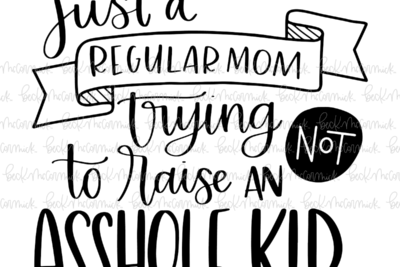 Just a
REGULAR MOM
trying
NOT
to raise AN
ASSHOLE KID